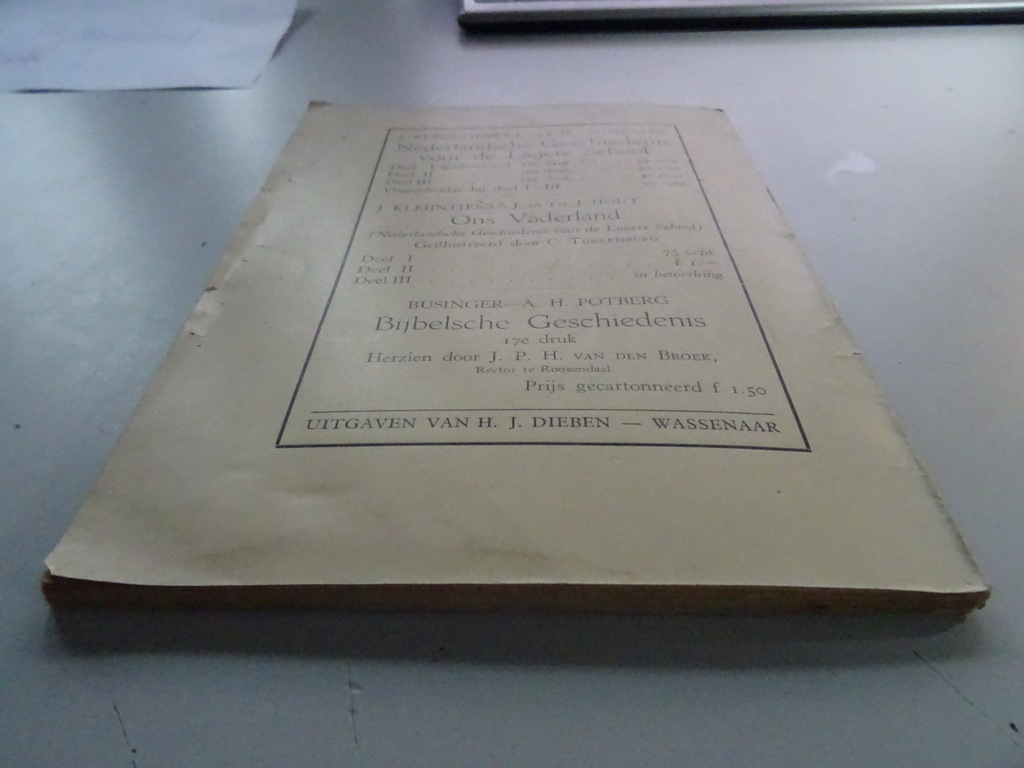 Nederlandsche Geschiedenis
voor de Lagere School
Deel I
Deel II
Deel III
Vragenboekje bij deel I—III
J. KLEIJNTJENS S.J. en
Ons Vaderland
(Nederlandsche Geschiedenis voor de Lagere School)
Geïllustreerd door C.
Deel I . . . . . . . . . . 75 cent
Deel II . . . . . . . . . . f 1.—
Deel III . . . . . . . . . . in bewerking
BUSINGER—A. H. POTBERG
Bijbelsche Geschiedenis
17e druk
Herzien door J. P. H. VAN DEN BROEK,
Rector te Roosendaal
Prijs gecartonneerd f 1.50
UITGAVEN VAN H. J. DIEBEN — WASSENAAR